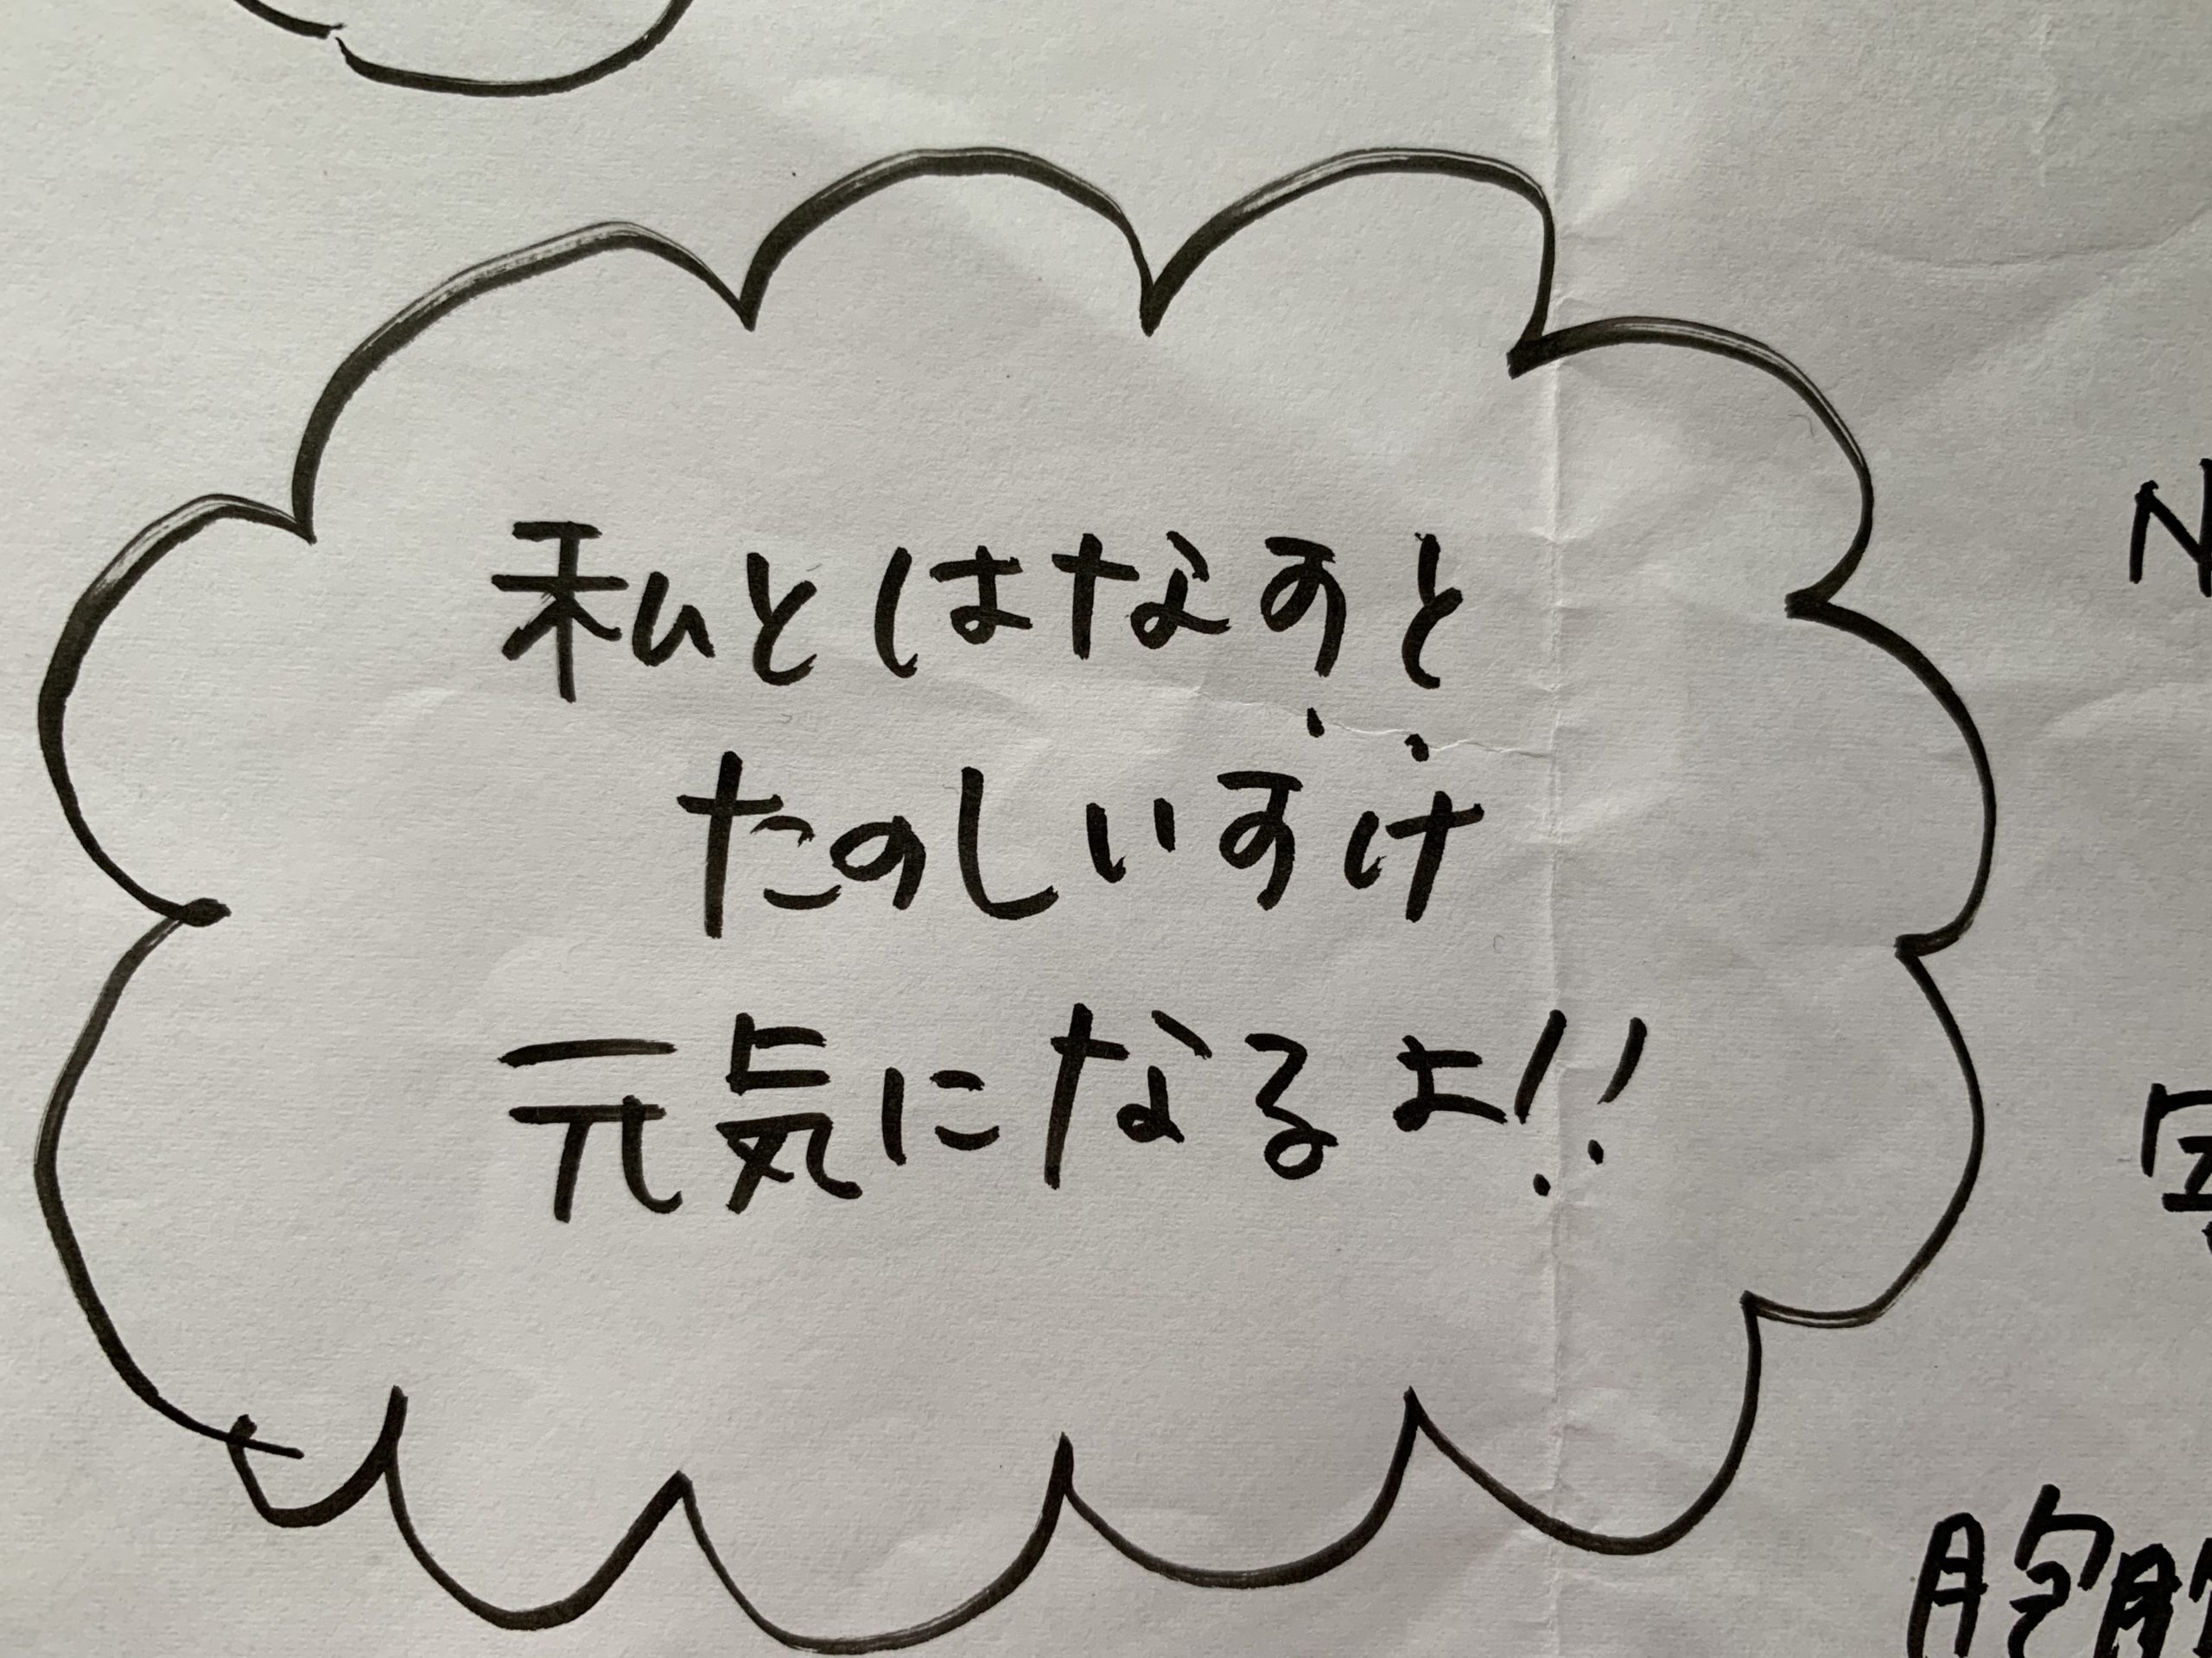 私とはなすと
たのしいすけ
元気になるよ!!
N
胞